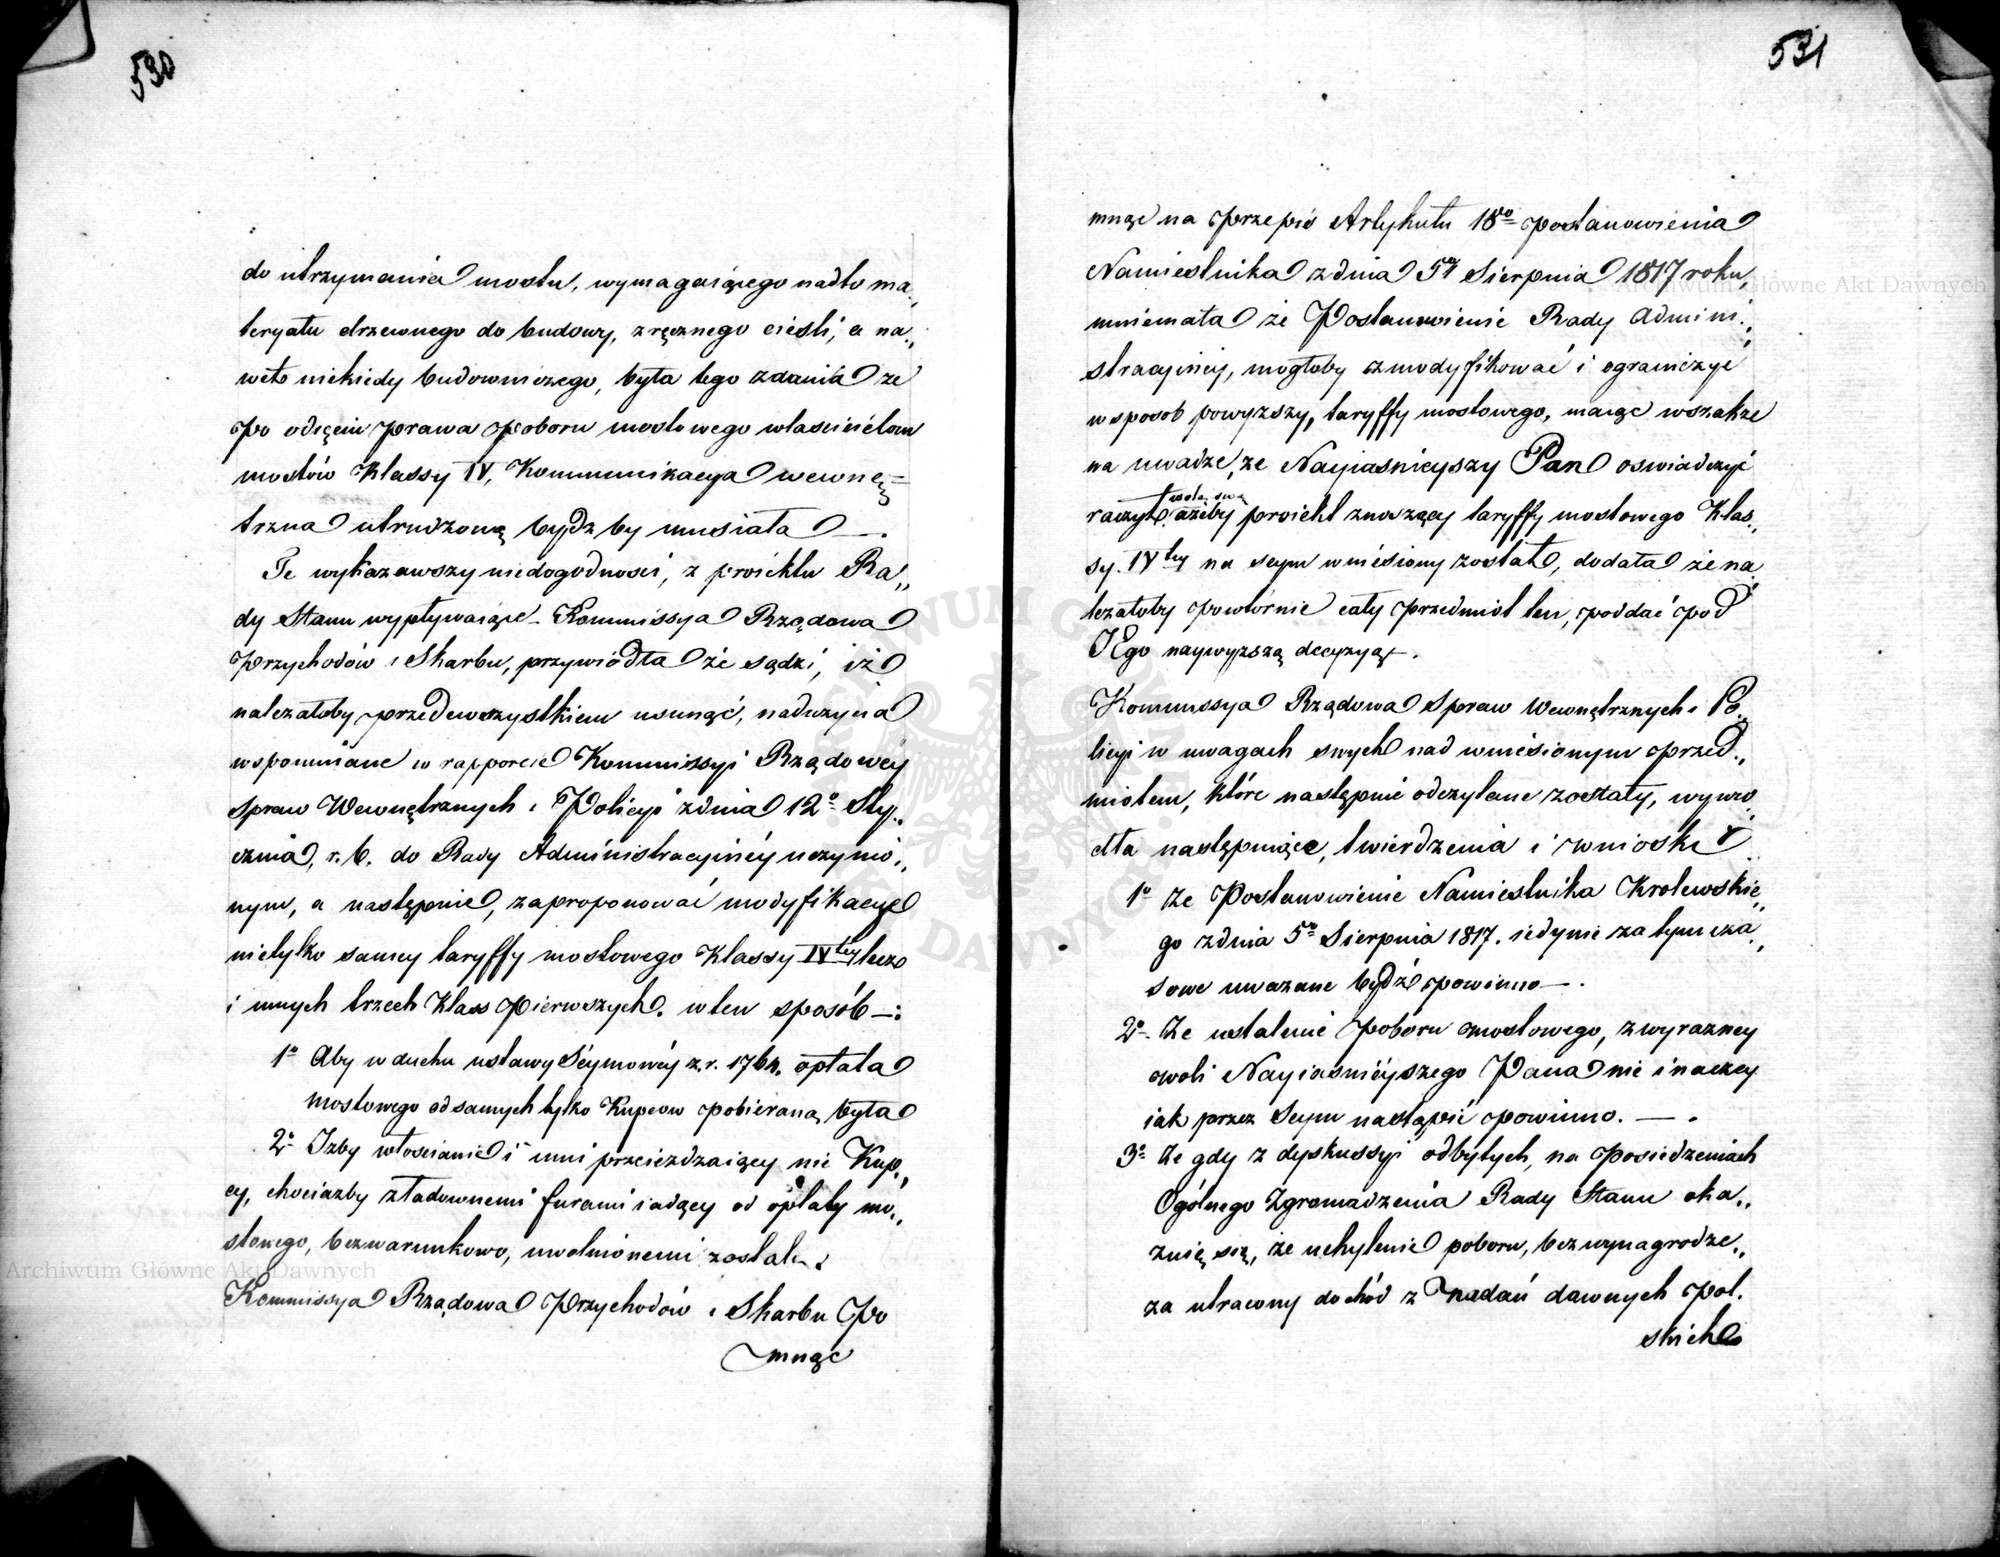 530
do utrzymania mostu, wymagaiącego nadto ma„
teryału drzewnego do budowy, zręcznego cieśli, a na„
weto niekiedy budowniczego, była tego zdania że
po odięciu prawa poboru mostowego właścicielom
mostów Klassy IV, Kommunikacya wewnę=
trzna utrudzoną bydź by musiała —.
Te wykazawszy niedogodności, z proiektu Ra„
dy Stanu wypływaiące – Kommissya Rządowa
Przychodów i Skarbu, przywiodła że sądzi, iż
należałoby przedewszystkiem usunąć, nadużycia
wspomniane w rapporcie Kommissyi Rządowéy
Spraw Wewnętrznych i Policyi z dnia 12º Sty„
cznia, r. b. do Rady Administracyinéy uczynio„
nym, a następnie, zaproponować modyfikacye
nietylko samey taryffy mostowego Klassy IVtey lecz
i innych trzech Klass Pierwszych. w ten sposób —:
1º Aby w duchu ustawy Séymowéy z r. 1764. opłata
mostowego od samych tylko Kupców pobieraną była
2º Iżby włościanie i inni przeieżdzaiący nie Kup„
cy, chociażby z ładownemi furami iadący od opłaty mo„
stowego, bezwarunkowo, uwolnionemi zostali.
Kommissya Rządowa Przychodów i Skarbu Po
mnąc
531
mnąc na przepis Artykułu 18go postanowienia
Namiestnika z dnia 5go Sierpnia 1817 roku
mniemała że Postanowienie Rady Admini„
stracyinéy, mogłoby zmodyfikować i ograniczyć
w sposób powyższy, taryffy mostowego, maiąc wszakże
na uwadze, że Nayiaśnieyszy Pan oświadczyć
wolę swą
raczył, ażeby proiekt znoszący taryffy mostowego Klas„
sy IVtey na seym wniesiony został, dodała że na
leżałoby powtórnie cały przedmiot ten, poddać pod
JEgo naywyższą decyzyą.
Kommissya Rządowa Spraw Wewnętrznych i Po„
licyi w uwagach swych nad wniesionym przed„
miotem, które następnie odczytane zostały, wywio„
dła następuiące, twierdzenia i wnioski
1º Że Postanowienie Namiestnika Królewskie„
go z dnia 5go Sierpnia 1817. iedynie za tymcza„
sowe uważane bydź powinno —.
2º Że ustalenie poboru mostowego, z wyrazney
woli Nayiaśniéyszego Pana nie inaczey
iak przez Seym nastąpić powinno. — .
3º Że gdy z dyskussyi odbytych, na Posiedzeniach
Ogólnego Zgromadzenia Rady Stanu oka„
zuię się, że uchylenie poboru, bez wynagrodze„
za utracony dochód z nadań dawnych pol.
skich
Archiwum Główne Akt Dawnych
Archiwum Główne Akt Dawnych